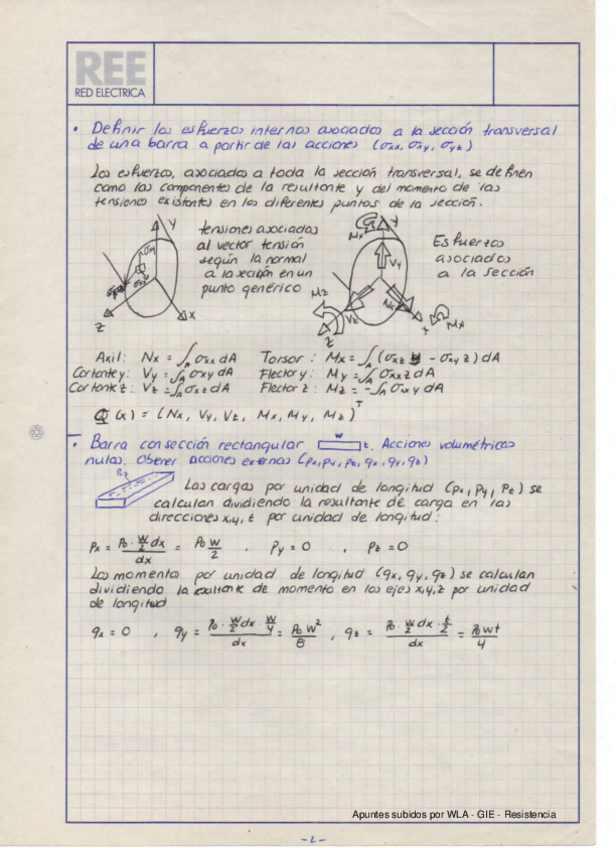 REE
RED ELECTRICA
• Definir los esfuerzos internos asociados a la sección transversal
de una barra a partir de las acciones (σxx, σxy, σxz)
Los esfuerzos, asociados a toda la sección transversal, se definen
como las componentes de la resultante y del momento de las
tensiones existentes en los diferentes puntos de la sección.
tensiones asociadas
al vector tensión
según la normal
a la sección en un
punto genérico
Y
σxy
σxx
Z
X
Mx
Y
Vy
Mz
Vz
Nx
Z
X
Mx
Esfuerzos
asociados
a la sección
Axil: Nx = ∫A σxx dA Torsor: Mx = ∫A (σxz y - σxy z) dA
Cortante y: Vy = ∫A σxy dA Flector y: My = ∫A σxx z dA
Cortante z: Vz = ∫A σxz dA Flector z: Mz = -∫A σxx y dA
Q (x) = (Nx, Vy, Vz, Mx, My, Mz)T
• Barra con sección rectangular w t. Acciones volumétricas
nulas. Obtener acciones externas (px, py, pz, qx, qy, qz)
Las cargas por unidad de longitud (px, py, pz) se
calculan dividiendo la resultante de carga en las
direcciones x, y, z por unidad de longitud:
px = p0 · w/2 dx / dx = p0 w / 2 , py = 0 , pz = 0
Los momentos por unidad de longitud (qx, qy, qz) se calculan
dividiendo la resultante de momento en los ejes x, y, z por unidad
de longitud
qx = 0 , qy = p0 · w/2 dx · w/4 / dx = p0 w² / 8 , qz = p0 · w/2 dx · t/2 / dx = p0 w t / 4
Apuntes subidos por WLA - GIE - Resistencia
- 2 -